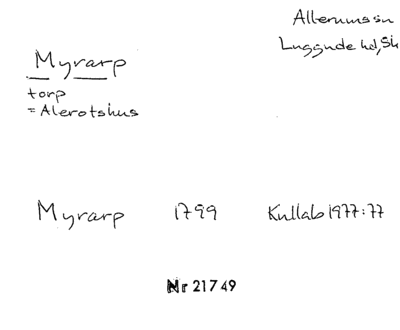 Allerums sn
Luggude hd, Sk
Myrarp
torp
= Alerotshus
Myrarp 1799 Kullab 1977:77
Nr 21749